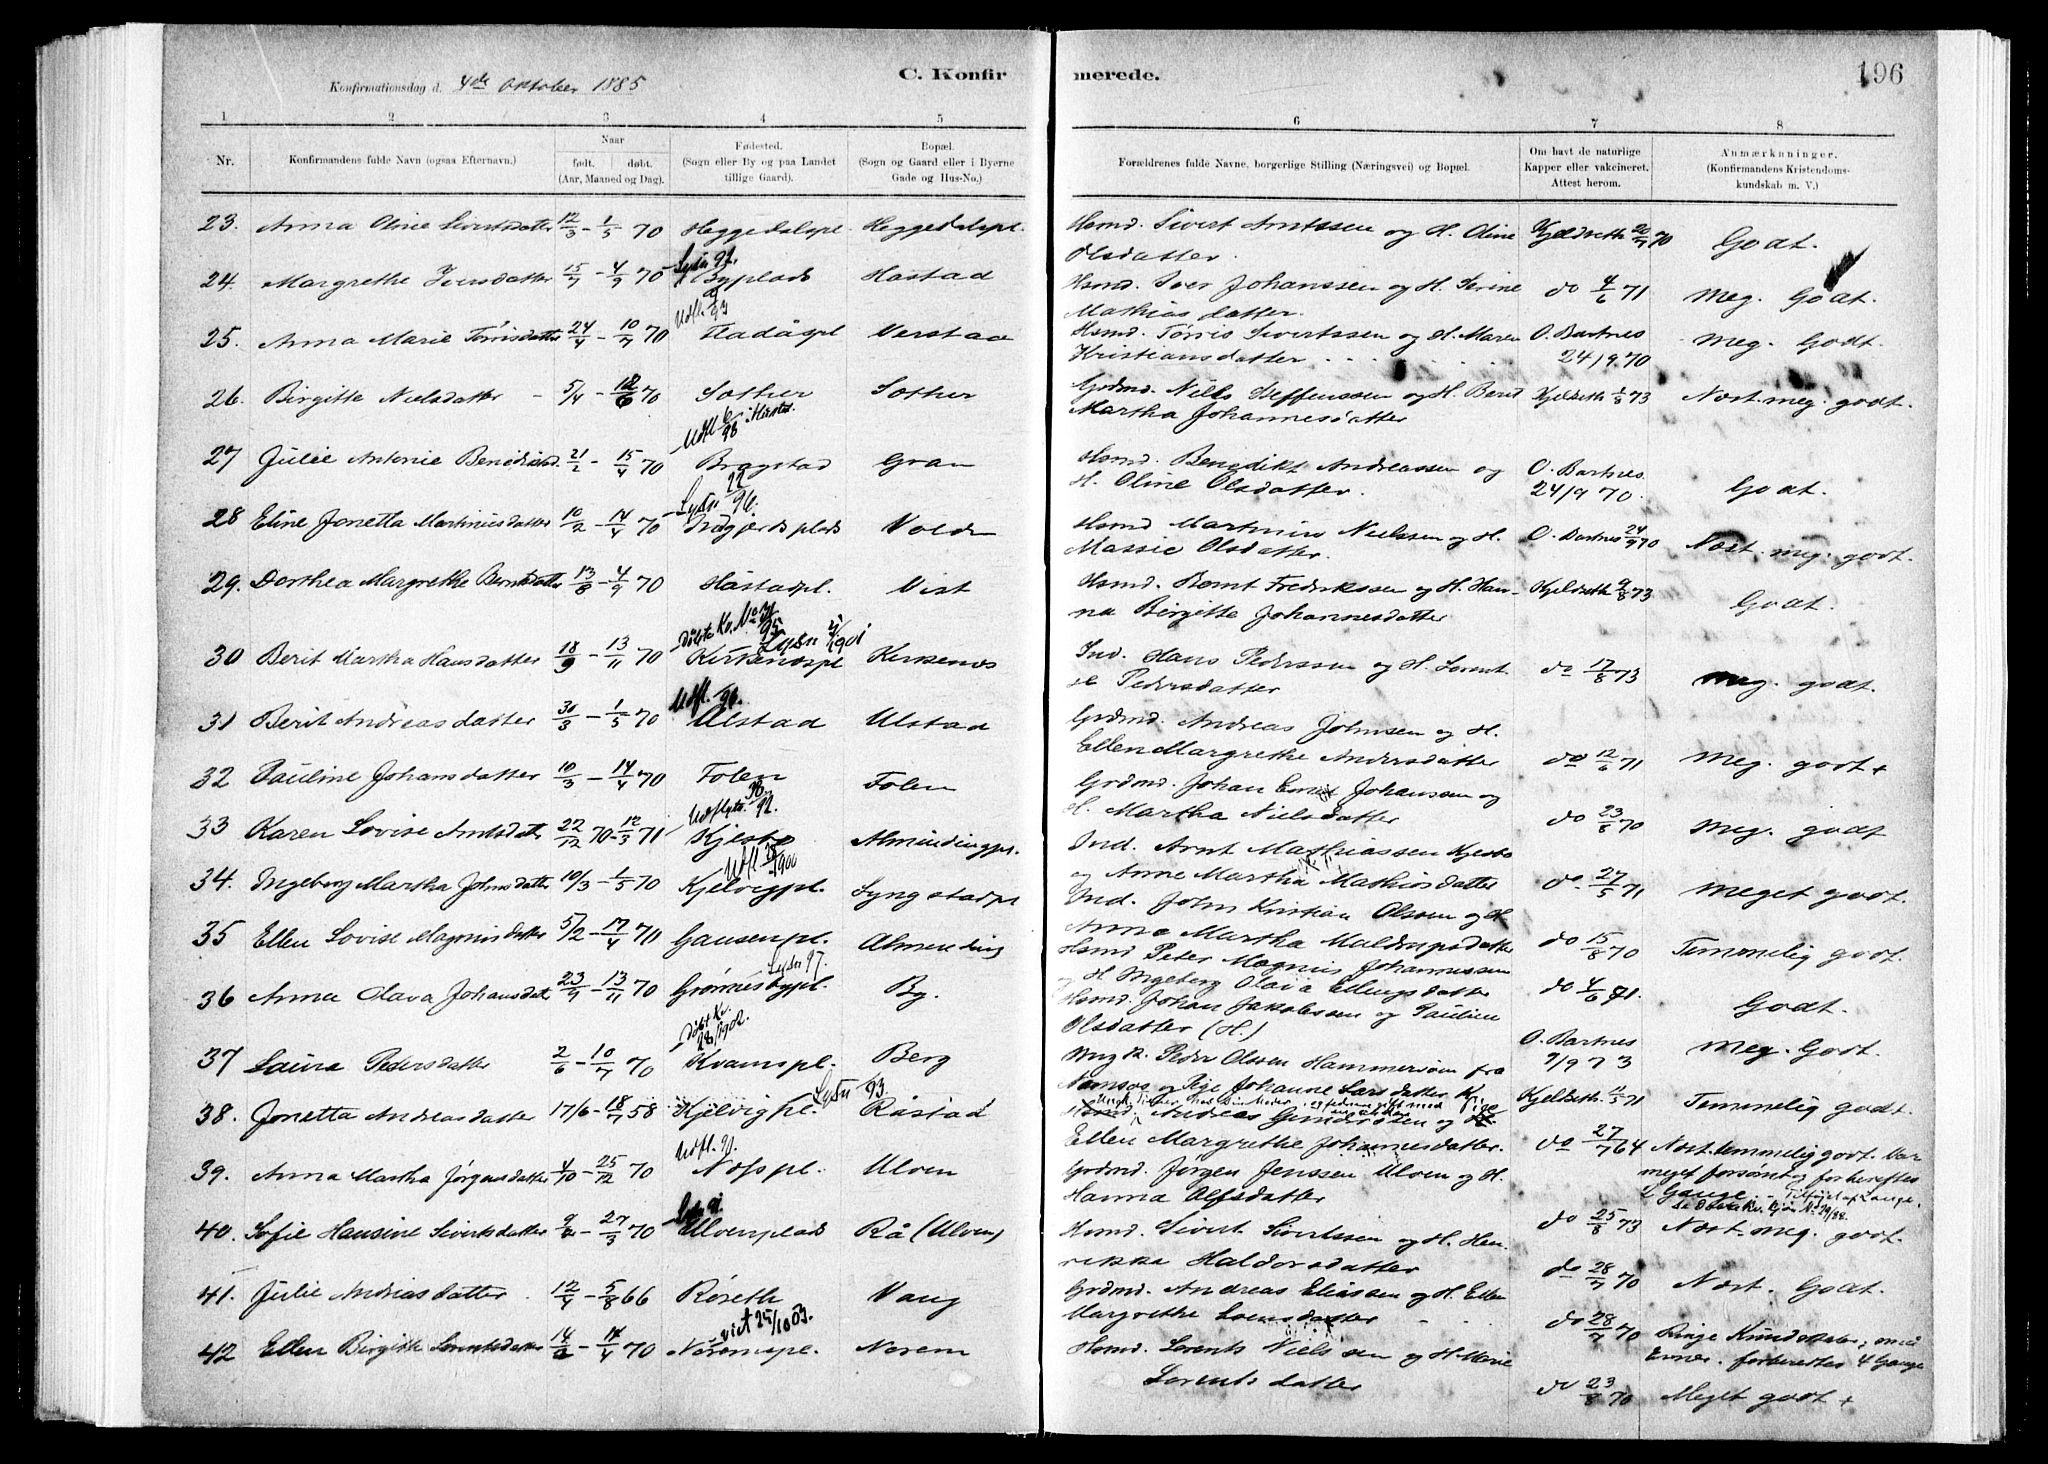 Konfirmationsdag d. 4de Oktober 1885
C. Konfir
merede.
196
1 2 3 4 5 6 7 8
Nr.
Konfirmandens fulde Navn (ogsaa Efternavn.)
Naar
født. døbt.
(Aar, Maaned og Dag).
Fødested.
(Sogn eller By og paa Landet
tillige Gaard).
Bopæl.
(Sogn og Gaard eller i Byerne
Gade og Hus-No.)
Forældrenes fulde Navne, borgerlige Stilling (Næringsvei) og Bopæl.
Om havt de naturlige
Kopper eller vakcineret.
Attest herom.
Anmærkninger.
(Konfirmandens Kristendoms-
kundskab m. V.)
23. Anna Oline Sivertsdatter 12/3 - 1/5 70 Heggedalspl. Heggedalspl.
Hsmd. Sivert Arntssen og H. Oline
Olsdatter.
70 Godt.
24. Margrethe Iversdatter 15/7 - 4/9 70 Byplads Hastad
Hsmd. Iver Johanssen og H. Serine
Mathiasdatter.
do 4/6 71 Meg. Godt.
25. Anna Marie Tørrisdatter 24/4 - 10/7 70
Hsmd. Tørris Sivertssen og H. Maren
Kristiansdatter
O. Bartnes
24/9 70
Meg. Godt.
26. Birgitte Nielsdatter - 5/4 - 70 Sother Sother
Grdmd. Niels Steffenssen og H. Berit
Martha Johannesdatter
73 Næst. meg. godt.
27 Julie Antonie 21/2 - 15/4 70 Bragstad Gran
Hsmd. Benedikt Andreassen og
H. Oline Olsdatter.
O. Bartnes
24/9 70.
Godt.
28 Eline Jonetta Martinusdatter 10/2 - 14/4 70
Hsmd Martinus Nielssen og H.
Massie Olsdatter.
O. Bartnes 24/9 70 Næst. meg. godt.
29. Dorthea Margrethe Berntsdatter 13/8 - 4/9 70 Håstadpl. Vist
Hsmd. Bernt Fredrikssen og H. Han-
na Birgitte Johannesdatter
Kjeldseth 9/8 73 Godt.
30 Berit Martha Hansdatter 18/9 - 13/11 70 Kirkenespl Kirkenes
Ind. Hans Pederssen og H. Lorent-
se Pedersdatter
do 17/8 73 Meg. godt.
31 Berit Andreasdatter 30/3 - 1/5 70 Ulstad Ulstad
Grdmd. Andreas Johnsen og H.
Ellen Margrethe Andersdatter
do 12/6 71 Meg. godt +
32 Pauline Johansdatter 10/3 - 14/4 70 Folen Folen
Grdmd. Johan Ernst Johanssen og
H. Martha Nielsdatter
do 23/8 70 Meg. godt
33 Karen Lovise Arntsdatter 22/12 70 - 12/3 71 Kjesbo Almindingpl.
Ind. Arnt Mathiassen Kjesbo
og Anne Martha Mathisdatter
do. 27/5 71 Meget godt.
34. Ingeborg Martha Johnsdatter 10/3 - 1/5 70 Kjelvigpl. Lyngstadpl
Ind. John Kristian Olssen og H
Anna Martha
do 15/8 70 Temmelig godt.
35 Ellen Lovise Magnusdatter 5/2 - 17/4 70 Gausenpl. Almending
Hsmd Peter Magnus Johannessen
og H Ingeborg Olava Ellingsdatter
do 4/6 71. Godt.
36 Anna Olava Johansdatter 23/9 - 13/11 70 By.
Hsmd. Johan Jakobssen og Pauline
Olsdatter (H.)
O. Bartnes
9/9 73
Meg. Godt.
37 Laura Pedersdatter 2/6 - 10/7 70 Kvamspl. Berg
Ung K. Peder Olssen fra
Namsos og Pige Johanne Larsdatter
71 Temmelig godt.
38. Jonetta Andreasdatter 17/6 - 18/7 58 Kjelvigpl. Råstad
Hsmd. Andreas og
Ellen Margrethe Johannesdatter.
do 27/7 64 Næst. temmelig godt. Var
meget forsømt og forberedtes
2 Gange
39. Anna Martha Jørgensdatter 4/10 - 25/12 70 Næsspl. Ulven
Grdmd. Jørgen Jenssen Ulven og H.
Hanna Olfsdatter
do 25/8 73 Næst. meg. godt.
40. Sofie Hansine Sivertsdatter 27/3 70 Ulvenplads Rå (Ulven)
Hsmd. Sivert Sivertssen og H. Hen-
rikka Haldorsdatter
do 28/7 70 Næst. Godt.
41. Julie Andreasdatter 12/4 - 5/8 66 Røseth Vang
Grdmd. Andreas Eliassen og H. Ellen
Margrethe
do 28/7 70 Ringe Kundskaber, små
Evner. forberedtes 4 Gange
42 Ellen Birgitte Lorentsdatter 70 Noremspl. Norem
Hsmd. Lorents Nielssen og H. Marie
Lorentsdatter
do 23/8 70 Meget godt +